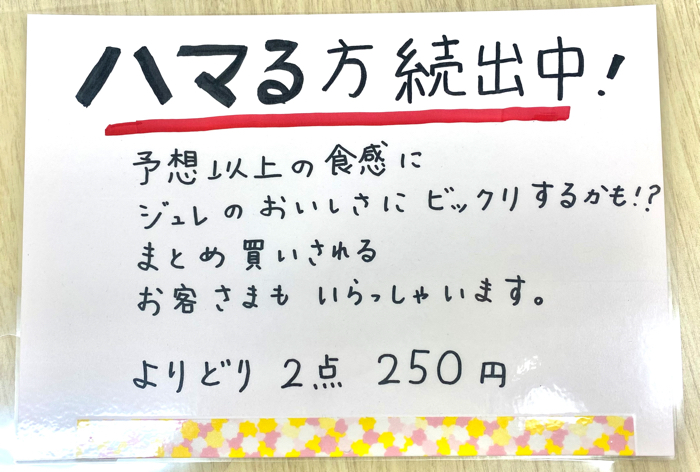 ハマる方続出中!
予想以上の食感に
ジュレのおいしさにビックリするかも!?
まとめ買いされる
お客さまもいらっしゃいます。
よりどり 2点 250円